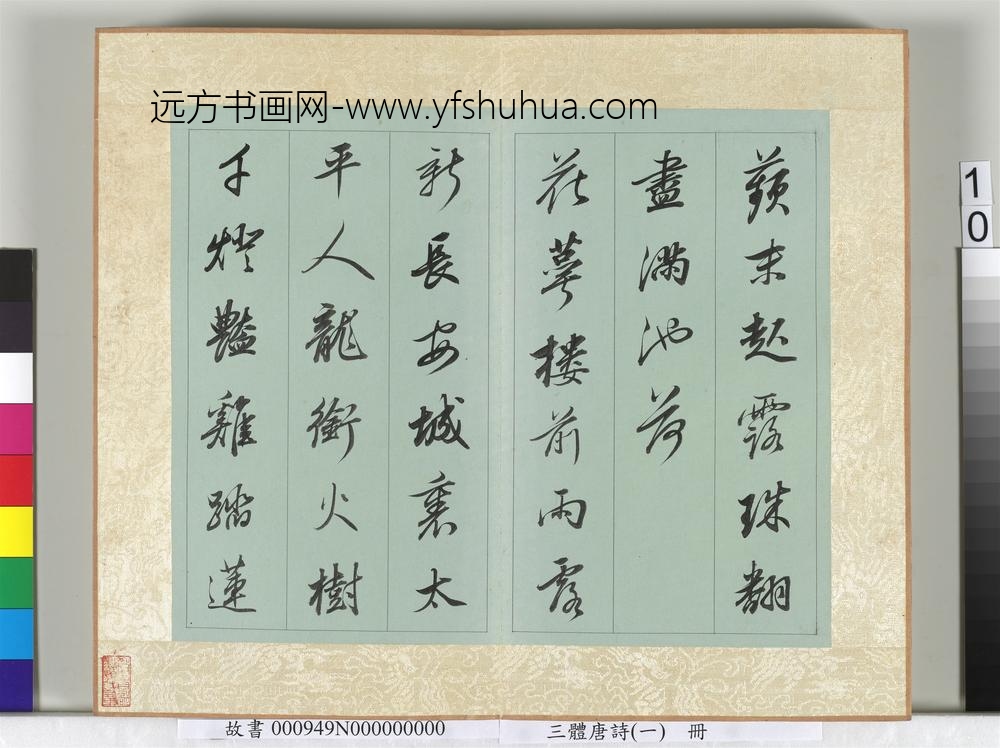 远方书画网-www.yfshuhua.com
蘋末起露珠翻
盡滿池荷
花萼樓前雨露
新長安城裏太
平人龍銜火樹
千燈豔雞踏蓮
1
0
故書 000949N000000000
三體唐詩(一) 冊